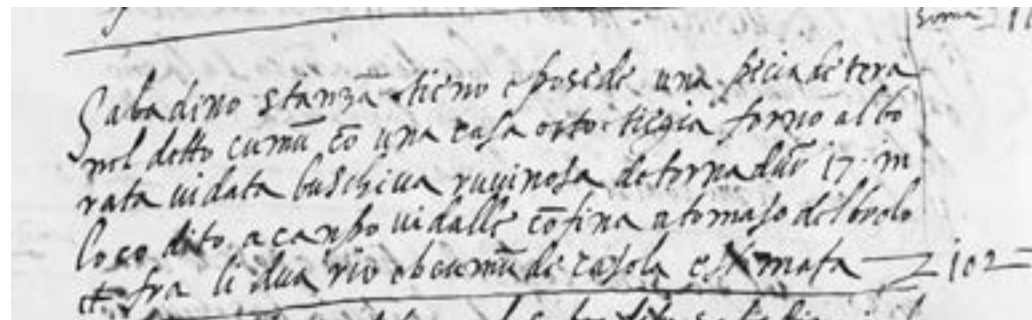 soma
Sabadino stanza tieno e posede una pecia de tera
nel detto cumũ cõ una casa orto e tiegia forno albo
rata vidata buschiva ruvinosa de tornadure 17 in
loco dito a canpo vidalle cõfina a tomaso del brolo
et fra li dua rivo el cumũ de casola estimata 102